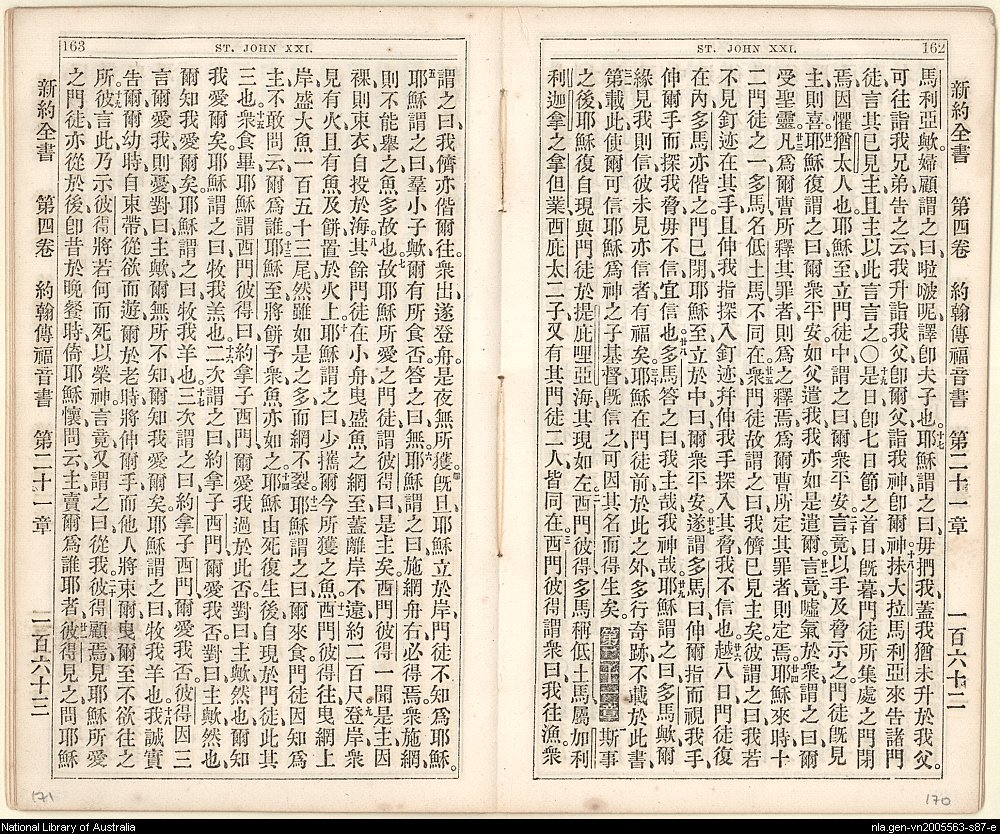 162
ST. JOHN XXI.
新約全書 第四卷 約翰傳福音書 第二十一章 一百六十二
馬利亞歟婦顧謂之曰啦啵呢譯卽夫子也耶穌謂之曰毋捫我蓋我猶未升於我父
可往詣我兄弟告之云我升詣我父卽爾父詣我神卽爾神抹大拉馬利亞來告諸門
徒言其已見主且主以此言言之〇是日卽七日節之首日旣暮門徒所集處之門閉
焉因懼猶太人也耶穌至立門徒中謂之曰爾衆平安言竟以手及脅示之門徒旣見
主則喜耶穌復謂之曰爾衆平安如父遣我我亦如是遣爾言竟噓氣於衆謂之曰爾
受聖靈凡爲爾曹所釋其罪者則爲之釋焉爲爾曹所定其罪者則定焉耶穌來時十
二門徒之一多馬名低土馬不同在衆門徒故謂之曰我儕已見主矣彼謂之曰我若
不見釘迹在其手且伸我指探入釘迹幷伸我手探入其脅我不信也越八日門徒復
在內多馬亦偕之門已閉耶穌至立於中曰爾衆平安遂謂多馬曰伸爾指而視我手
伸爾手而探我脅毋不信宜信也多馬答之曰我主哉我神哉耶穌謂之曰多馬歟爾
緣見我則信彼未見亦信者有福矣耶穌在門徒前於此之外多行奇跡不載於此書
第載此使爾可信耶穌爲神之子基督旣信之可因其名而得生矣 第二十一章 斯事
之後耶穌復自現與門徒於提庇哩亞海其現如左西門彼得多馬稱低土馬屬加利
利迦拿之拿但業西庇太二子又有其門徒二人皆同在西門彼得謂衆曰我往漁衆
170
163
ST. JOHN XXI.
謂之曰我儕亦偕爾往衆出遂登舟是夜無所獲旣旦耶穌立於岸門徒不知爲耶穌
耶穌謂之曰羣小子歟爾有所食否答之曰無耶穌謂之曰施網舟右必得焉衆施網
則不能舉之魚多故也故耶穌所愛之門徒謂彼得曰是主矣西門彼得一聞是主因
裸則束衣自投於海其餘門徒在小舟曳盛魚之網至蓋離岸不遠約二百尺登岸衆
見有火且有魚及餅置於火上耶穌謂之曰少攜爾今所獲之魚西門彼得往曳網上
岸盛大魚一百五十三尾然雖如是之多而網不裂耶穌謂之曰爾來食門徒因知爲
主不敢問云爾爲誰耶穌至將餅予衆魚亦如之耶穌由死復生後自現於門徒此其
三也衆食畢耶穌謂西門彼得曰約拿子西門爾愛我過於此否對曰主歟然也爾知
我愛爾矣耶穌謂之曰牧我羔也二次謂之曰約拿子西門爾愛我否對曰主歟然也
爾知我愛爾矣耶穌謂之曰牧我羊也三次謂之曰約拿子西門爾愛我否彼得因三
言爾愛我則憂對曰主歟爾無所不知爾知我愛爾矣耶穌謂之曰牧我羊也我誠實
告爾爾幼時自束帶從欲而遊爾於老時將伸爾手而他人將束爾曳爾至不欲往之
所彼言此乃示彼得將若何而死以榮神言竟又謂之曰從我彼得顧焉見耶穌所愛
之門徒亦從於後卽昔於晩餐時倚耶穌懷問云主賣爾爲誰耶者彼得見之問耶穌
新約全書 第四卷 約翰傳福音書 第二十一章 一百六十三
171
National Library of Australia
nla.gen-vn2005563-s87-e